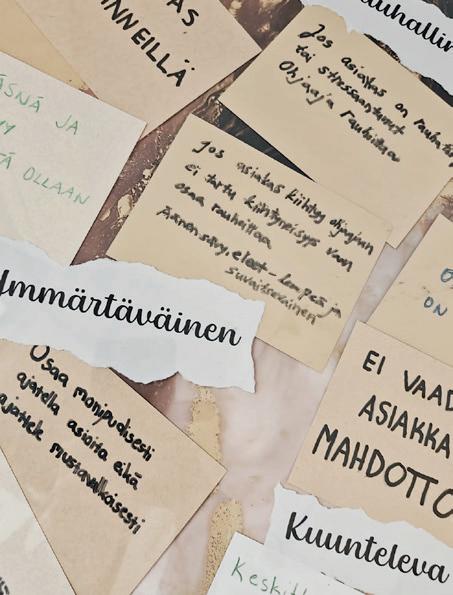 INNEILLÄ
auhallin
Jos asiakas on rauhaton
tai stressaantunut
Ohjaaja rauhoittaa
ÄSNÄ JA
TÄ OLLAAN
Jos asiakas kiihtyy ohjaajaan
ei tartu kiihtyneisyys vaan
osaa rauhoittaa
Äänensävy, eleet - lempeä ja
suvaitsevainen
Ymmärtäväinen
ON
EI VAAD
ASIAKKA
MAHDOTTO
Osaa monipuolisesti
ajatella asioita eikä
ajattele mustavalkoisesti
Kuunteleva
Keskitt